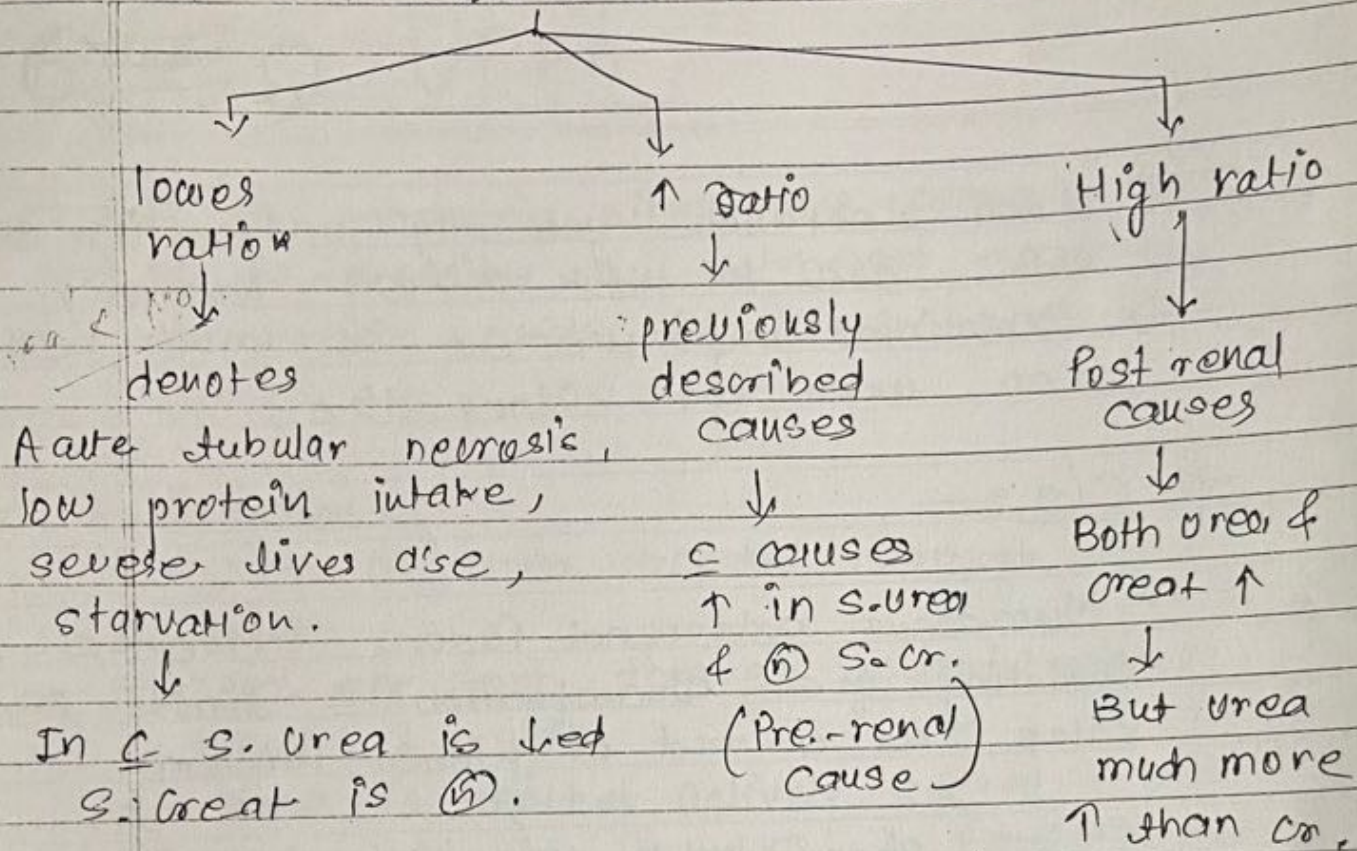 lower
ratio
↓
denotes
Acute tubular necrosis,
low protein intake,
severe liver d'se,
starvation.
↓
In c̲ S. Urea is ↓ed
S. Creat is ⓝ.
↑ ratio
↓
previously
described
causes
↓
c̲ causes
↑ in S. urea
& ⓝ S. Cr.
(Pre-renal
cause)
High ratio
↓
Post renal
causes
↓
Both urea &
creat ↑
↓
But urea
much more
↑ than cr.